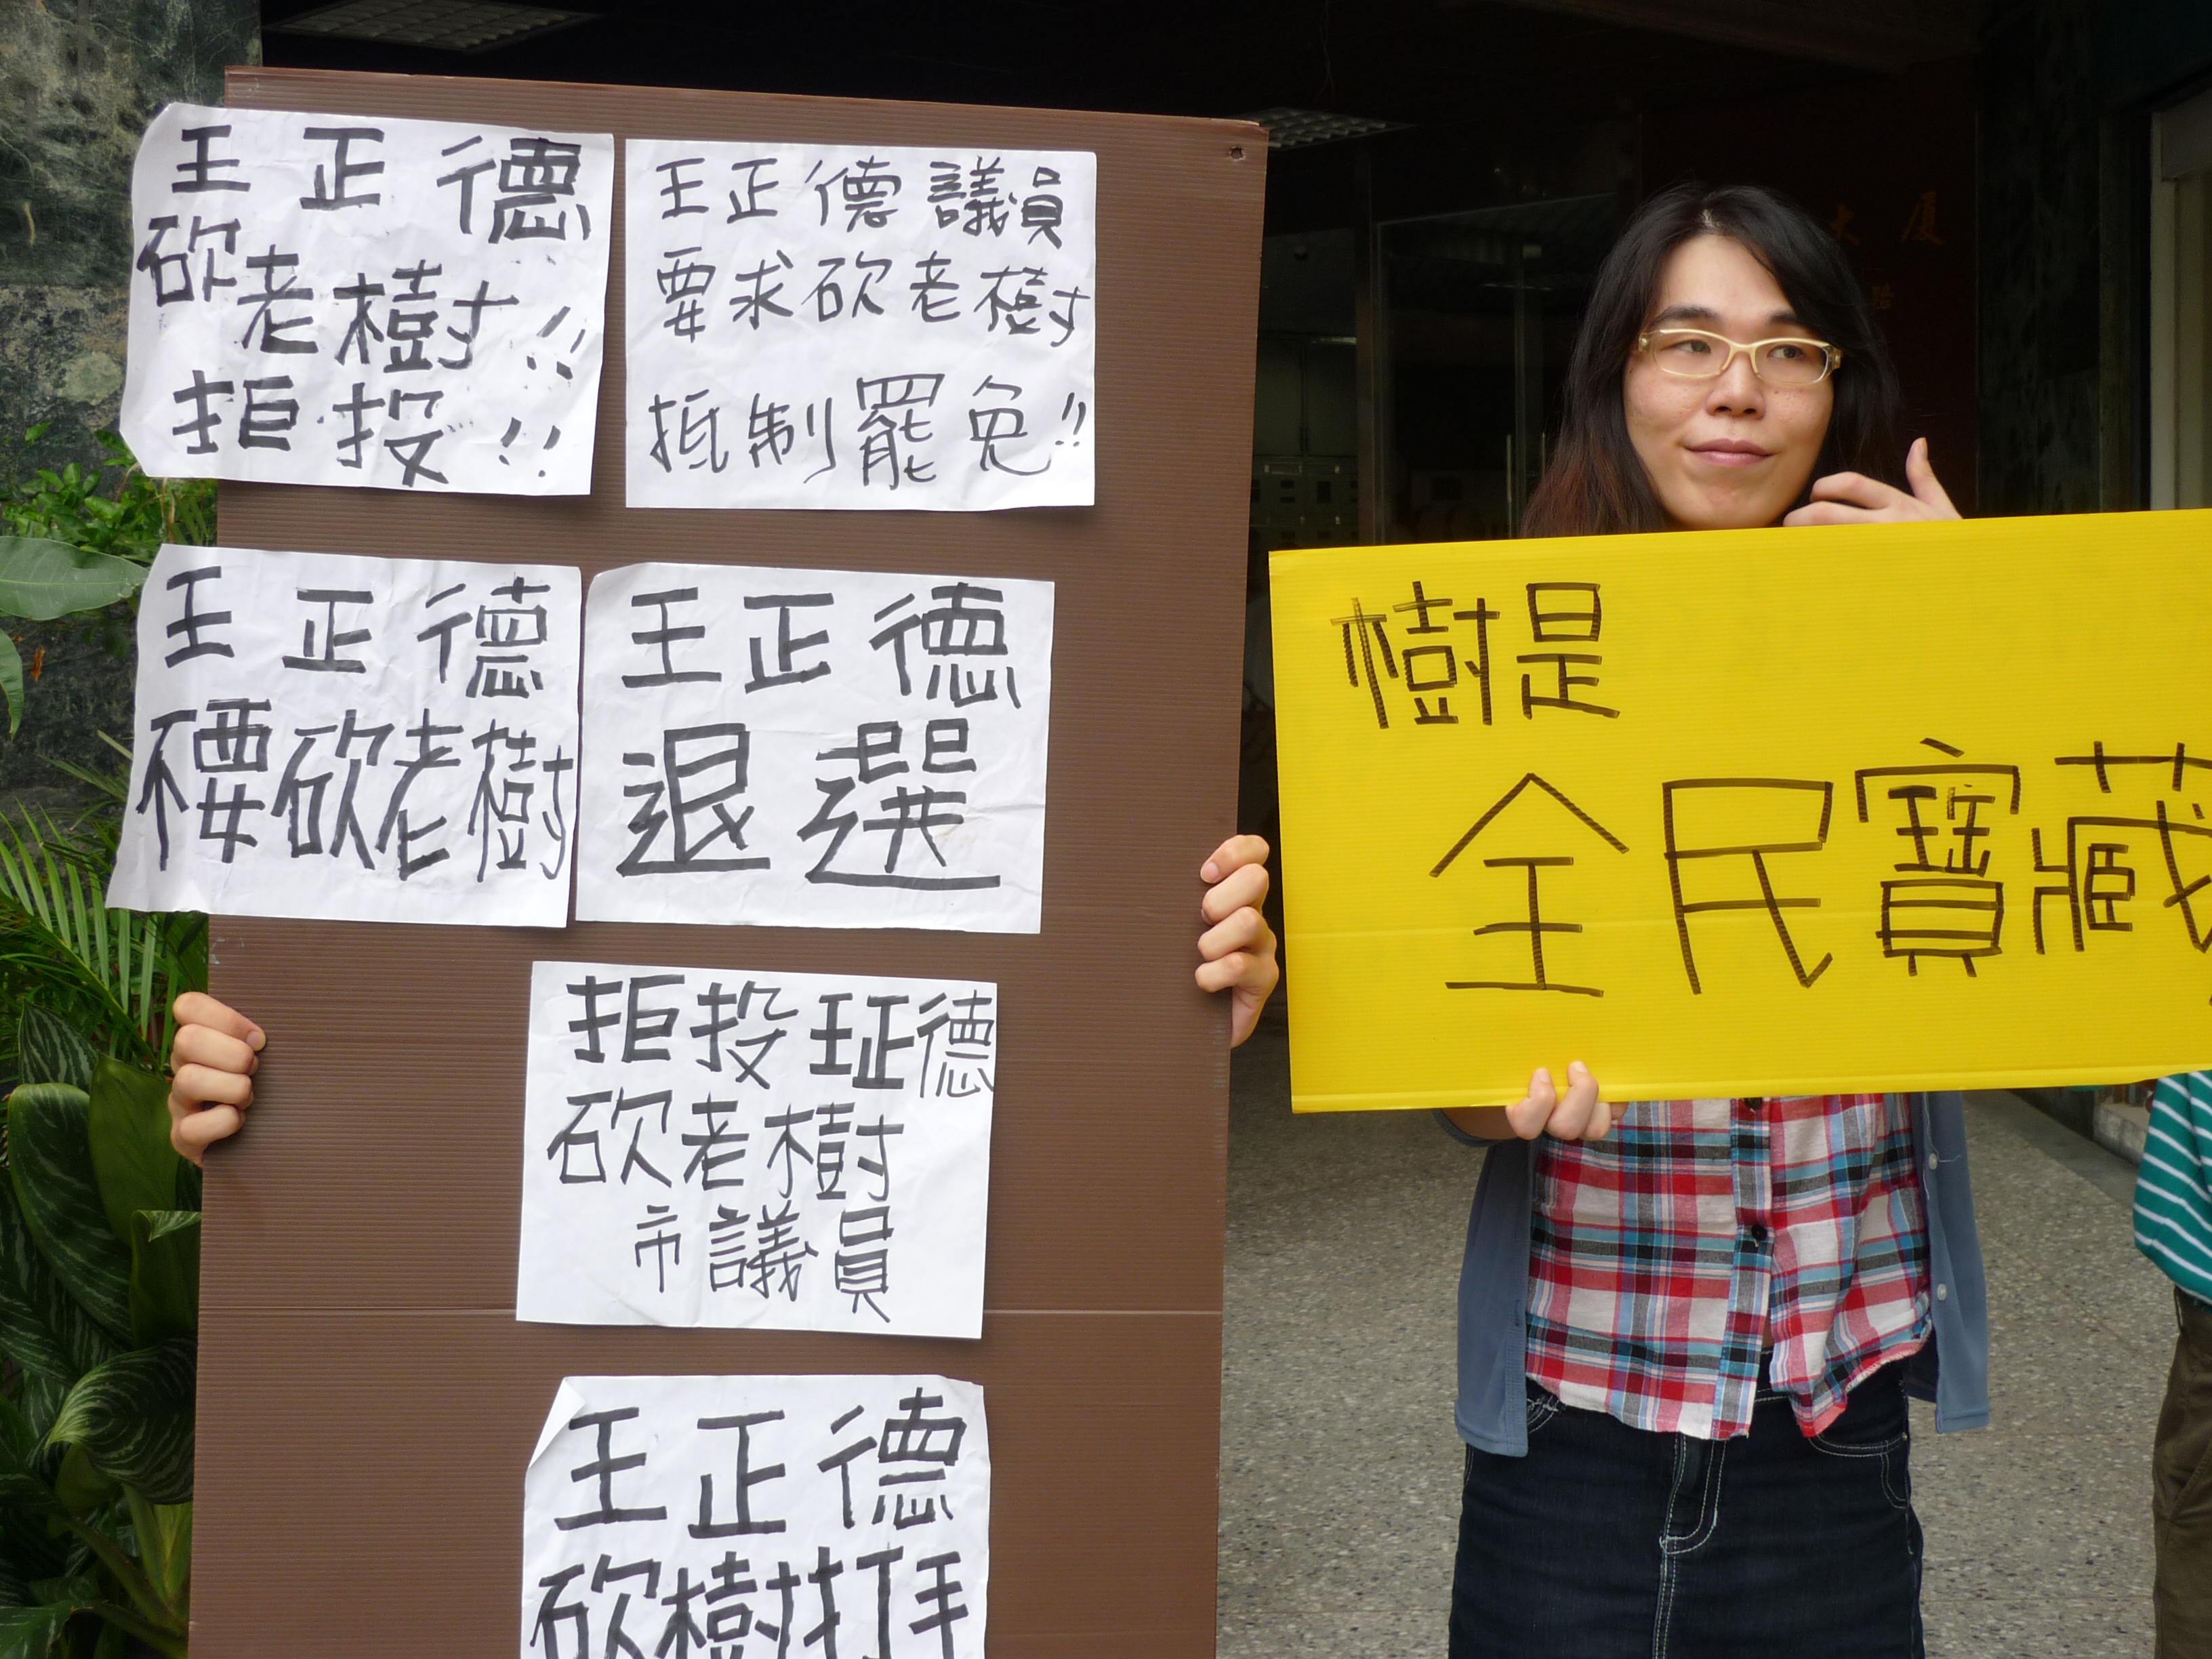 王正德
砍老樹!!
拒投!!
王正德議員
要求砍老樹
抵制罷免!!
王正德
不要砍老樹
王正德
退選
拒投王正德
砍老樹
市議員
王正德
砍樹打手
樹是
全民寶藏
大厦